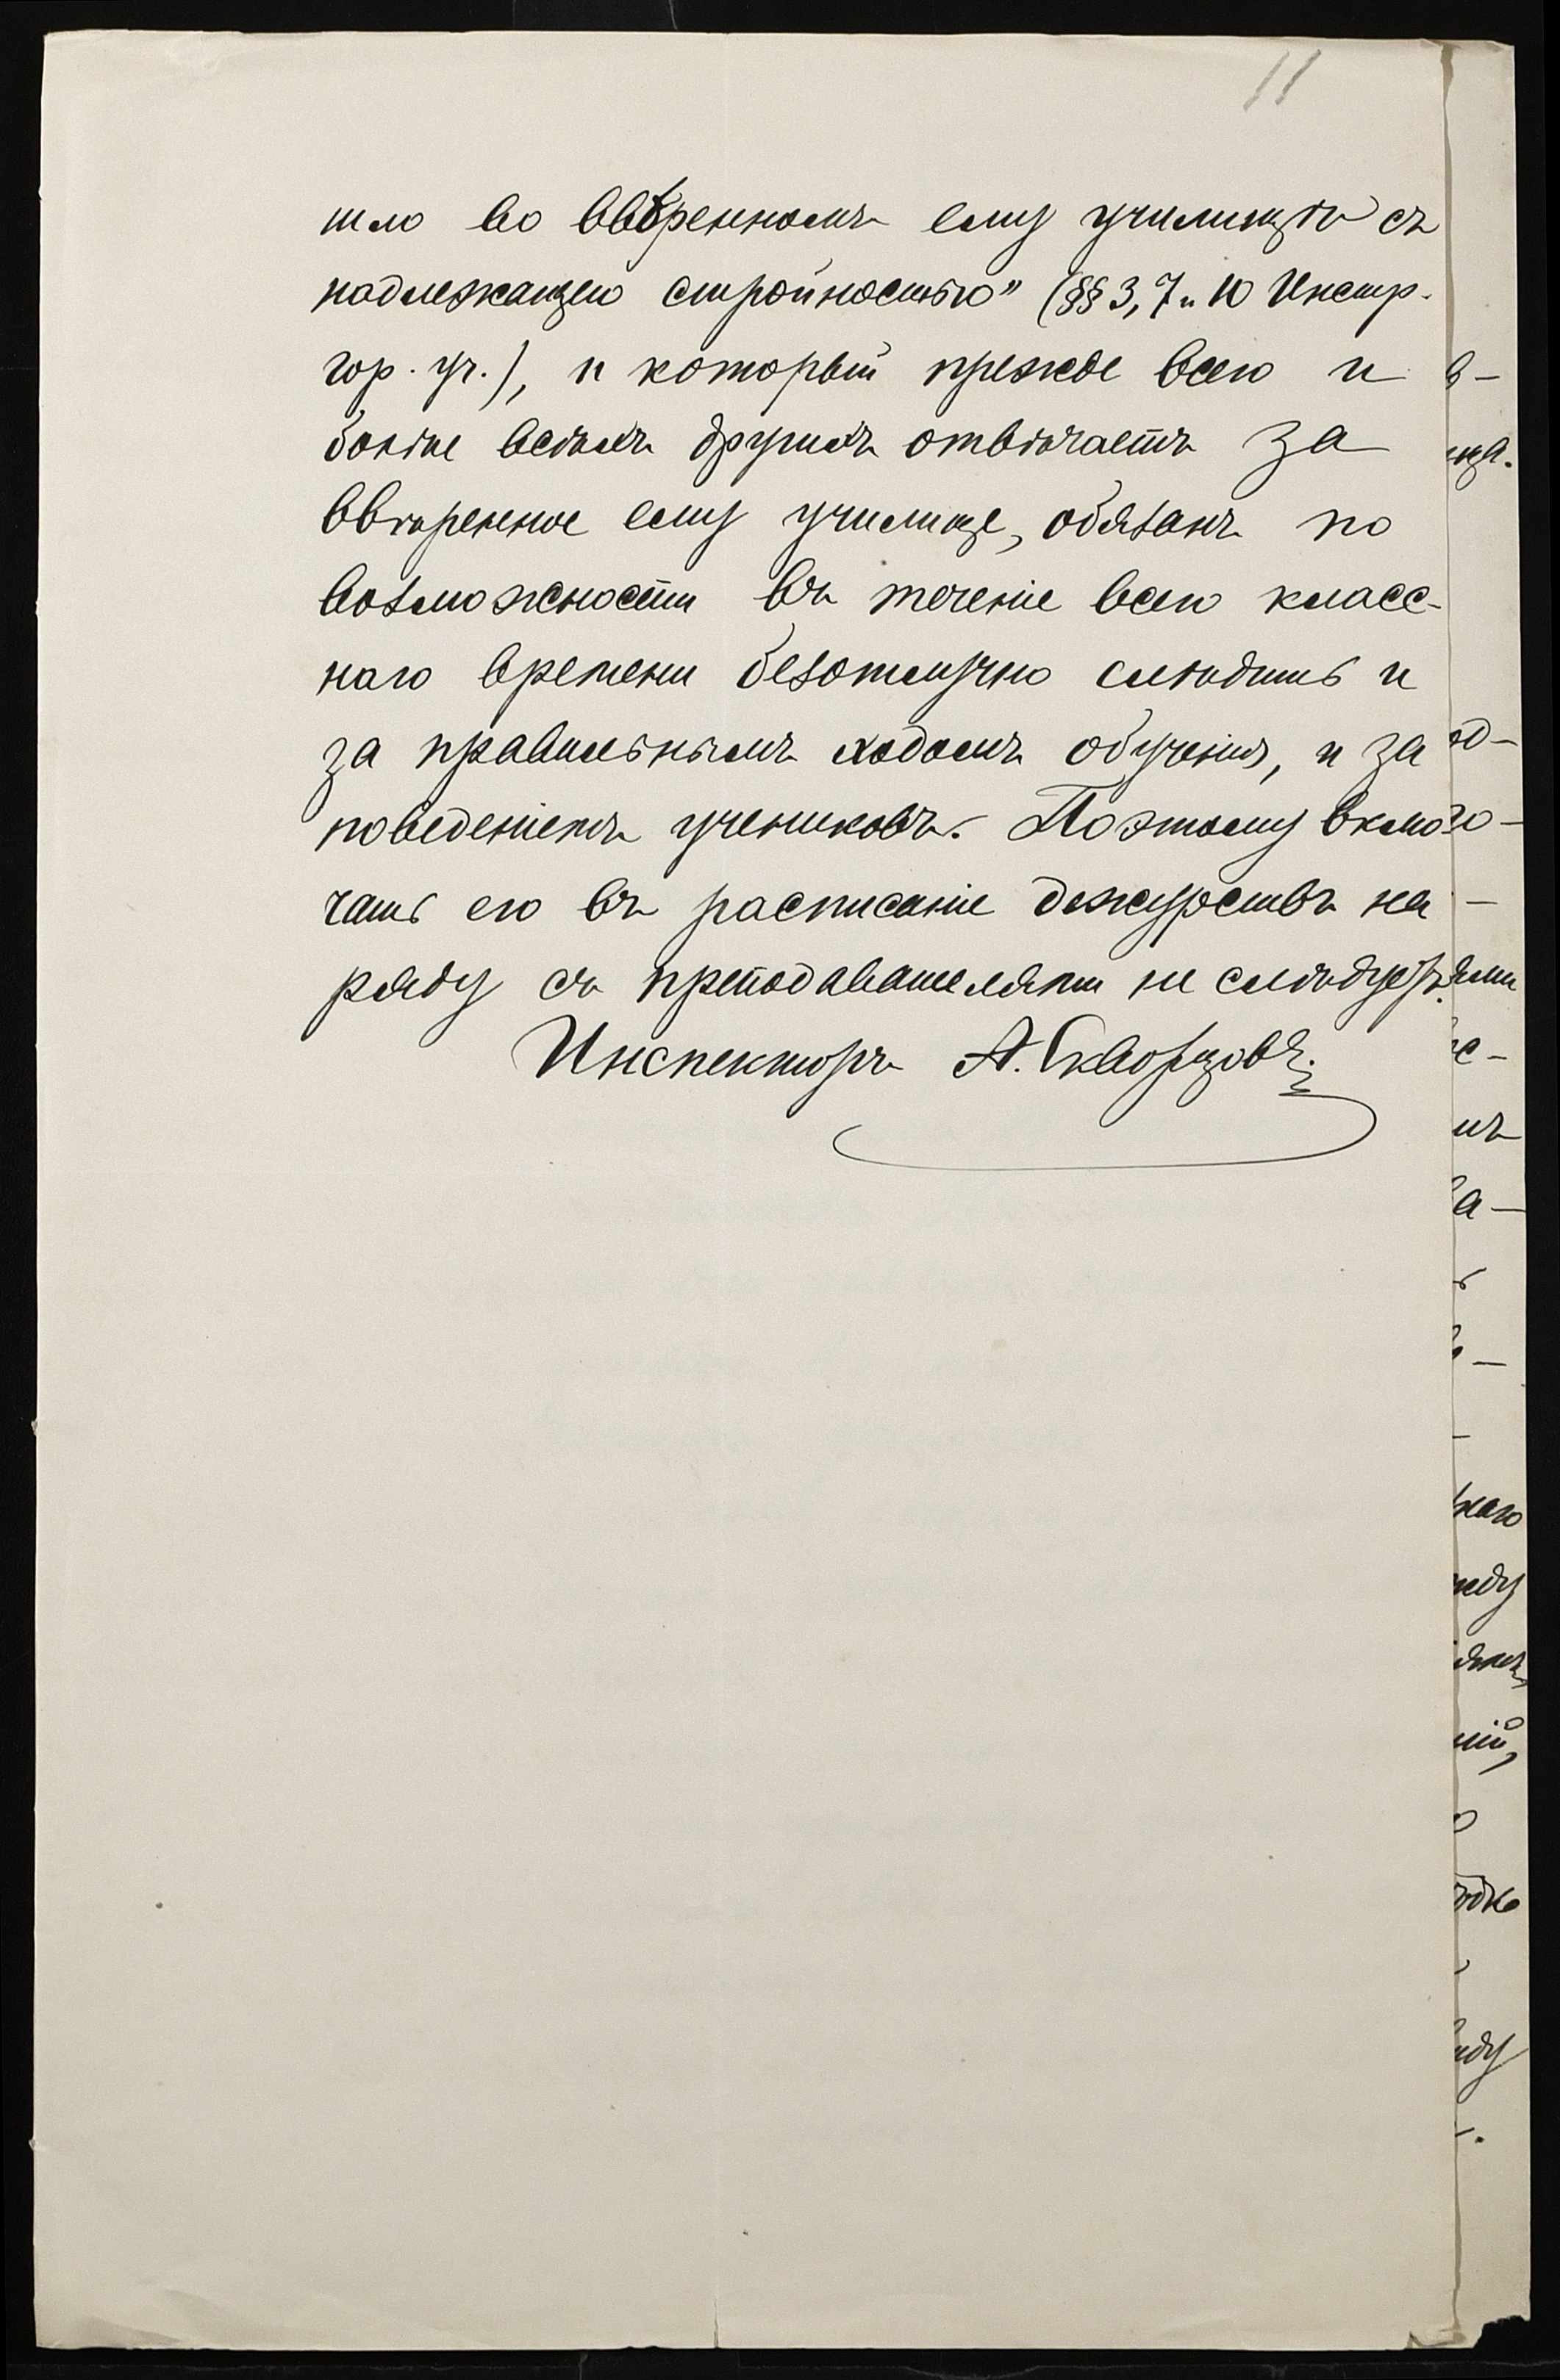 11
шло во ввѣренномъ ему училищѣ съ
надлежащею стройностью" (§§ 3, 7 и 10 Инстр.
гор. уч.), и который прежде всего и
болѣе всѣхъ другихъ отвѣчаетъ за
ввѣренное ему училище, обязанъ по
возможности въ теченіе всего класс-
наго времени безотлучно слѣдить и
за правильнымъ ходомъ обученія, и за
поведеніемъ учениковъ. Поэтому вклю-
чать его въ расписаніе дежурствъ на
ряду съ преподавателями не слѣдуетъ.
Инспекторъ А. Скворцовъ.